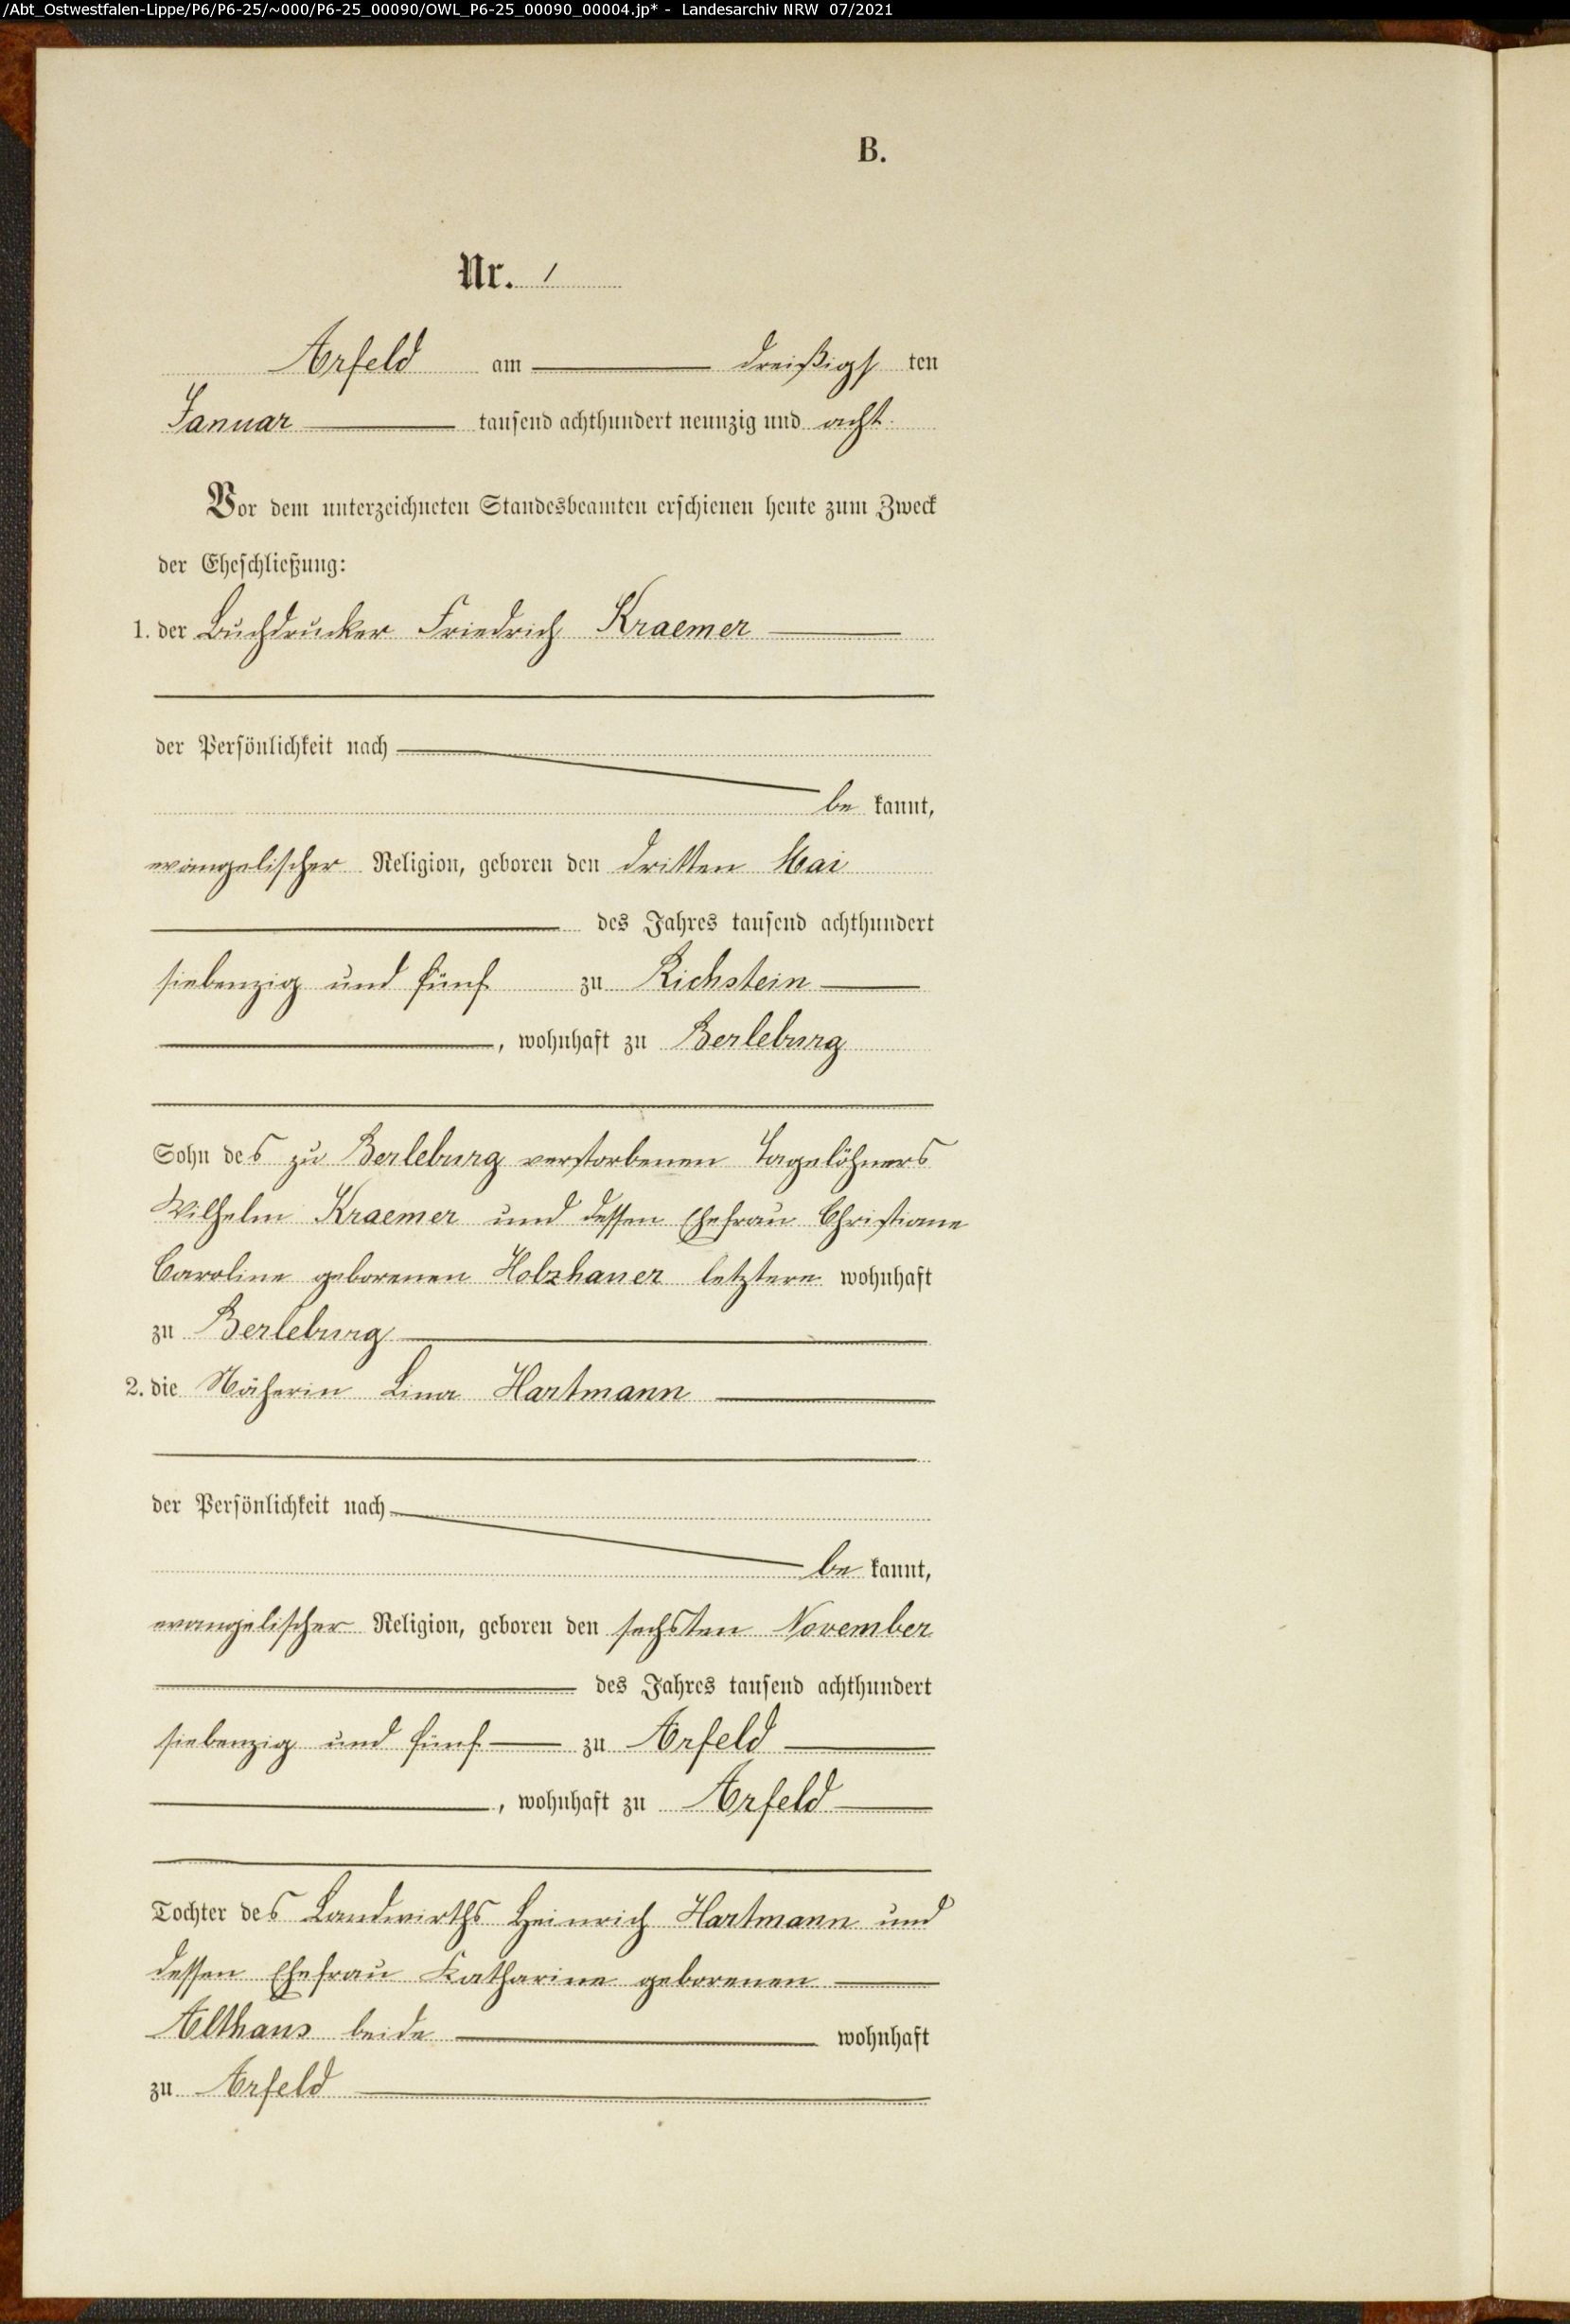 /Abt_Ostwestfalen-Lippe/P6/P6-25/~000/P6-25_00090/OWL_P6-25_00090_00004.jp* - Landesarchiv NRW 07/2021
B.
Nr. 1
Arfeld am dreißigsten
Januar tausend achthundert neunzig und acht.
Vor dem unterzeichneten Standesbeamten erschienen heute zum Zweck
der Eheschließung:
1. der Buchdrucker Friedrich Kraemer
der Persönlichkeit nach
be kannt,
evangelischer Religion, geboren den dritten Mai
des Jahres tausend achthundert
siebenzig und fünf zu Richstein
, wohnhaft zu Berleburg
Sohn des zu Berleburg verstorbenen Tagelöhners
Wilhelm Kraemer und dessen Ehefrau Christiane
Caroline geborenen Holzhauer letztere wohnhaft
zu Berleburg
2. die Näherin Lina Hartmann
der Persönlichkeit nach
be kannt,
evangelischer Religion, geboren den sechsten November
des Jahres tausend achthundert
siebenzig und fünf zu Arfeld
, wohnhaft zu Arfeld
Tochter des Landwirths Heinrich Hartmann und
dessen Ehefrau Katharine geborenen
Althaus beide wohnhaft
zu Arfeld